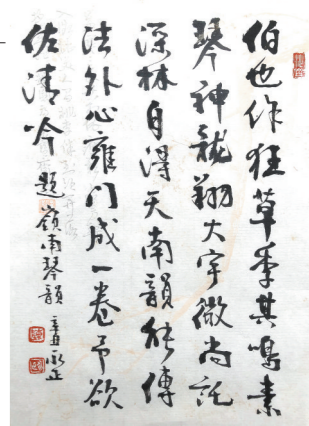 伯也作狂草季其鳴素
琴神龍翔大宇微尚託
深林自得天南韻能傳
法外心雍门成一卷予欲
佐清吟 題嶺南琴韻 辛丑